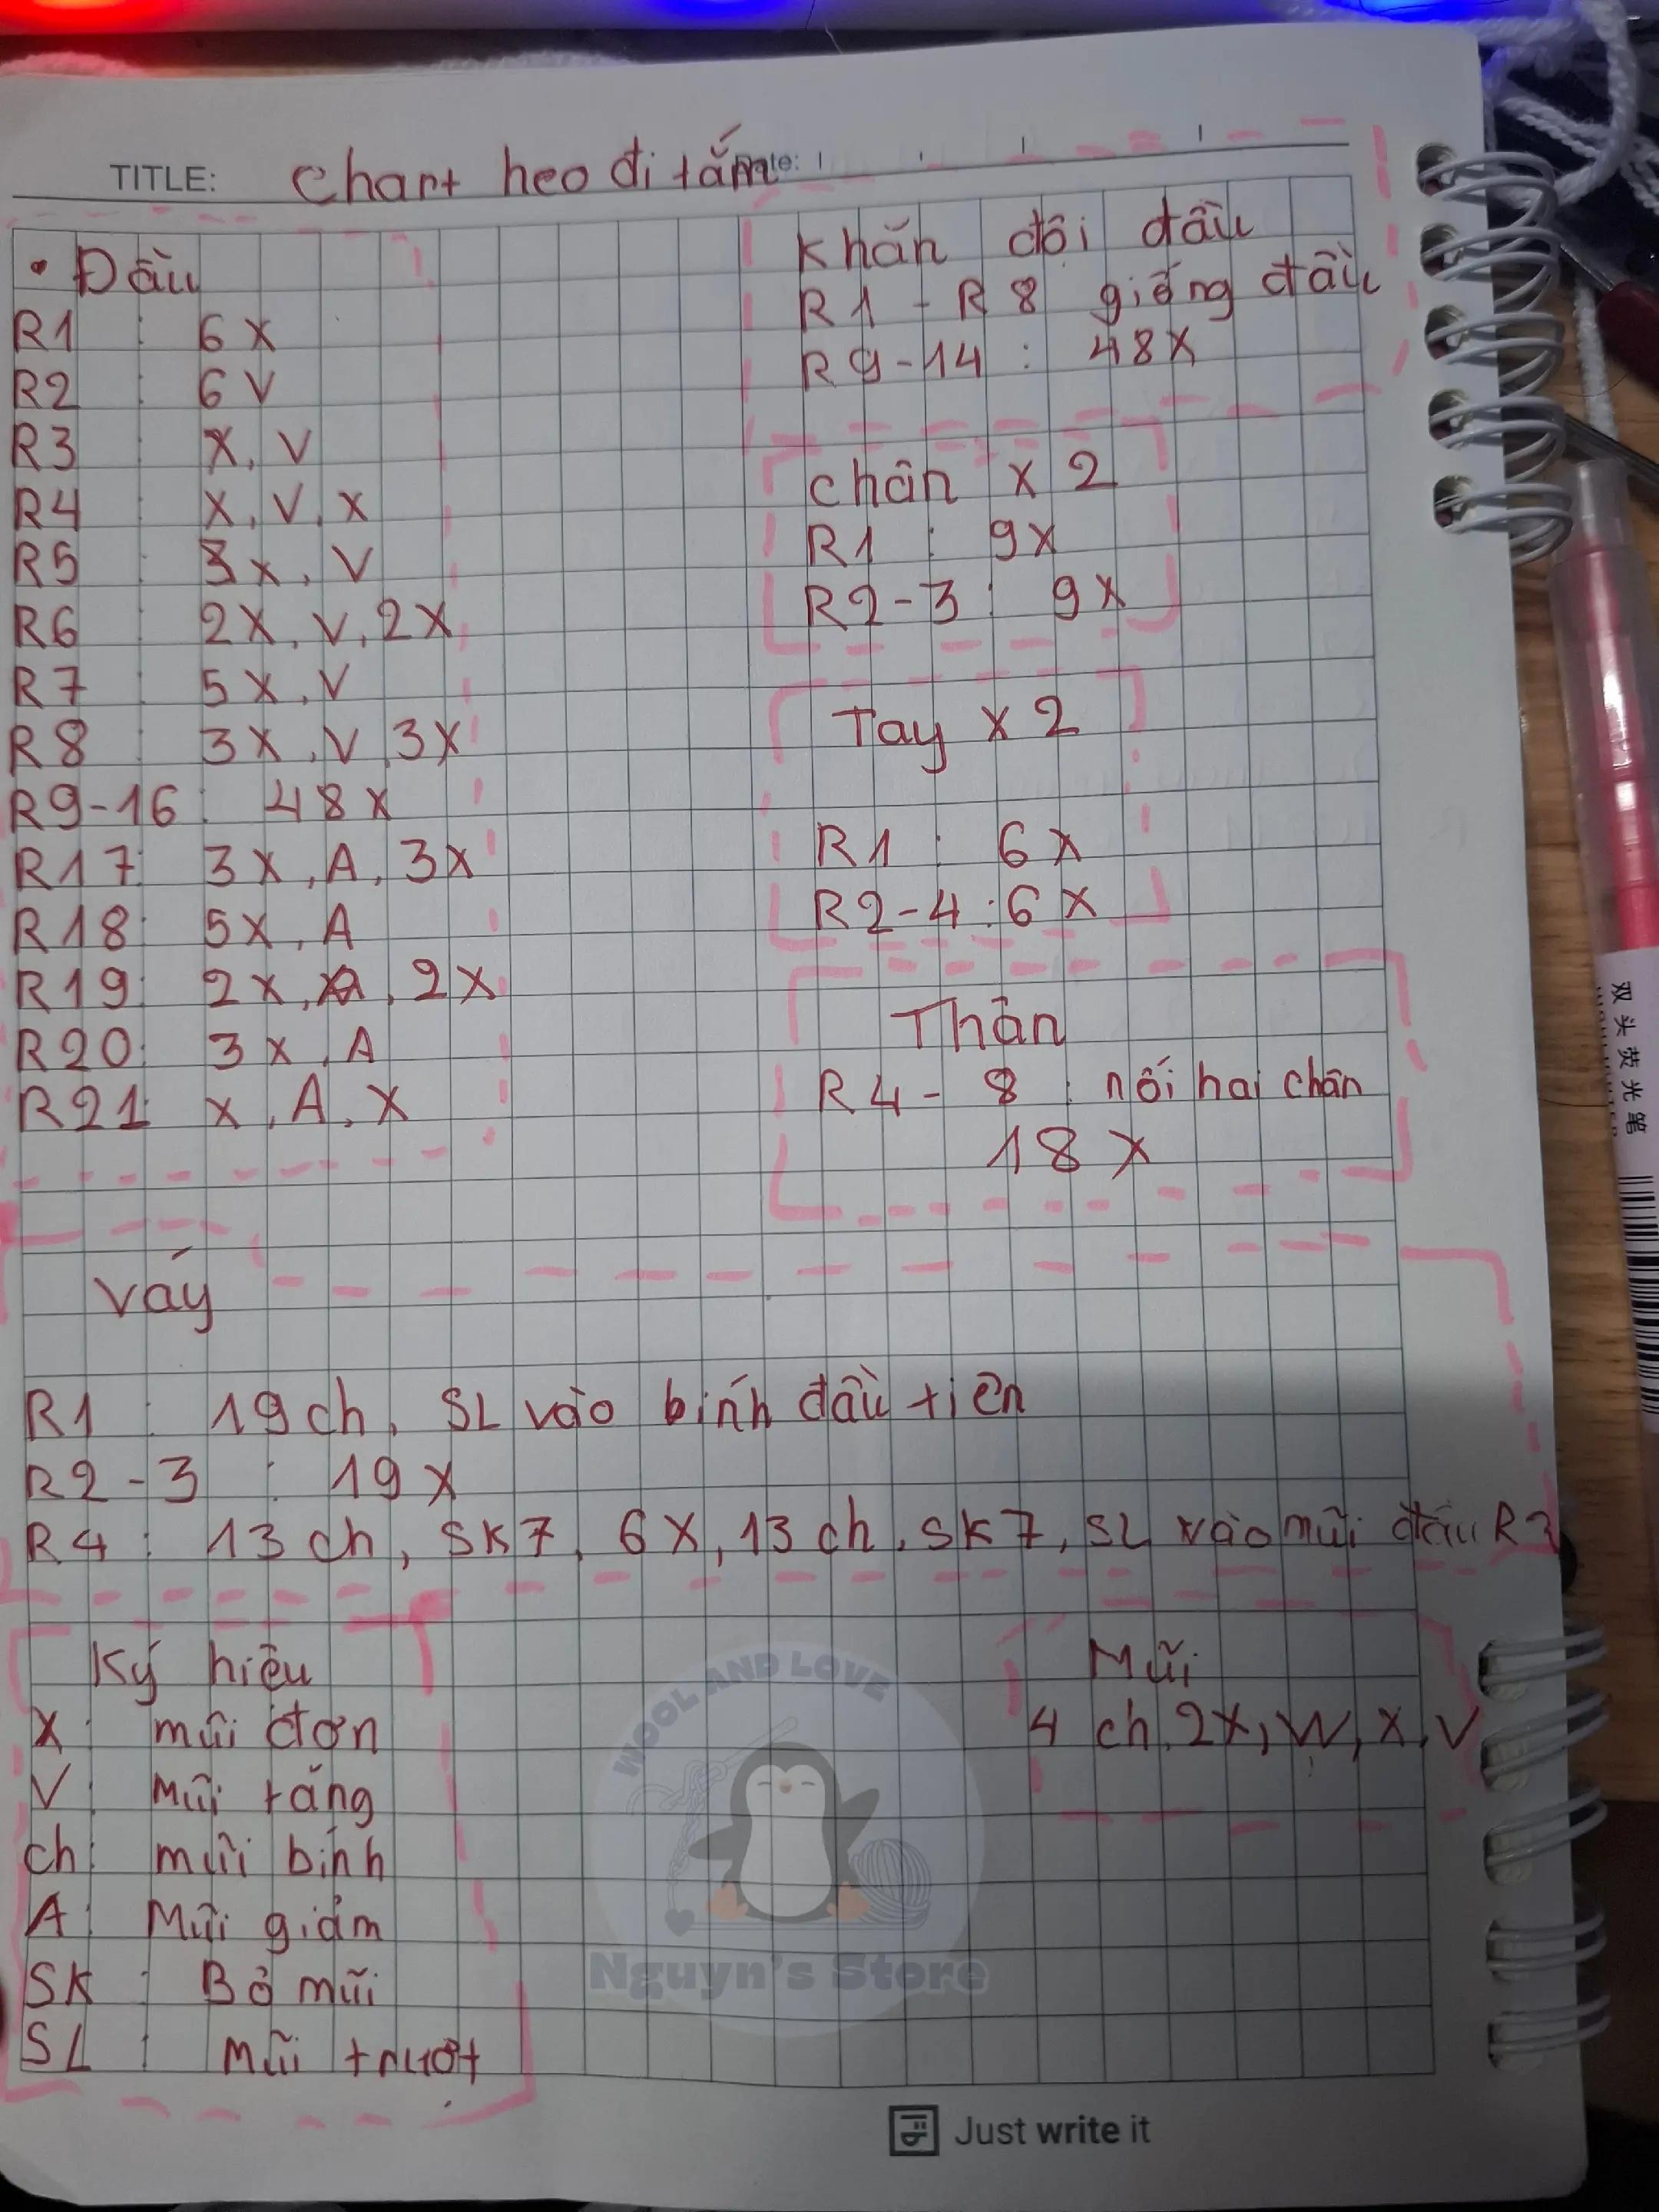 TITLE: Chart heo đi tắm
• Đầu
R1 : 6X
R2 : 6V
R3 : X, V
R4 : X, V, X
R5 : 3X, V
R6 : 2X, V, 2X
R7 : 5X, V
R8 : 3X, V, 3X
R9-16 : 48X
R17 : 3X, A, 3X
R18 : 5X, A
R19 : 2X, A, 2X
R20 : 3X, A
R21 : X, A, X
Khăn đội đầu
R1 - R8 giống đầu
R9-14 : 48X
Chân x 2
R1 : 9X
R2-3 : 9X
Tay x 2
R1 : 6X
R2-4 : 6X
Thân
R4 - 8 : nối hai chân
18 X
Váy
R1 : 19 ch, SL vào bính đầu tiên
R2-3 : 19X
R4 : 13 ch, SK7, 6X, 13 ch, SK7, SL vào mũi đầu R3
Ký hiệu
X : mũi đơn
V : Mũi tăng
ch : mũi bính
A : Mũi giảm
SK : Bỏ mũi
SL : Mũi trượt
Mũi
4 ch, 2X, W, X, V
WOOL AND LOVE
Nguyn's Store
Just write it
双头荧光笔